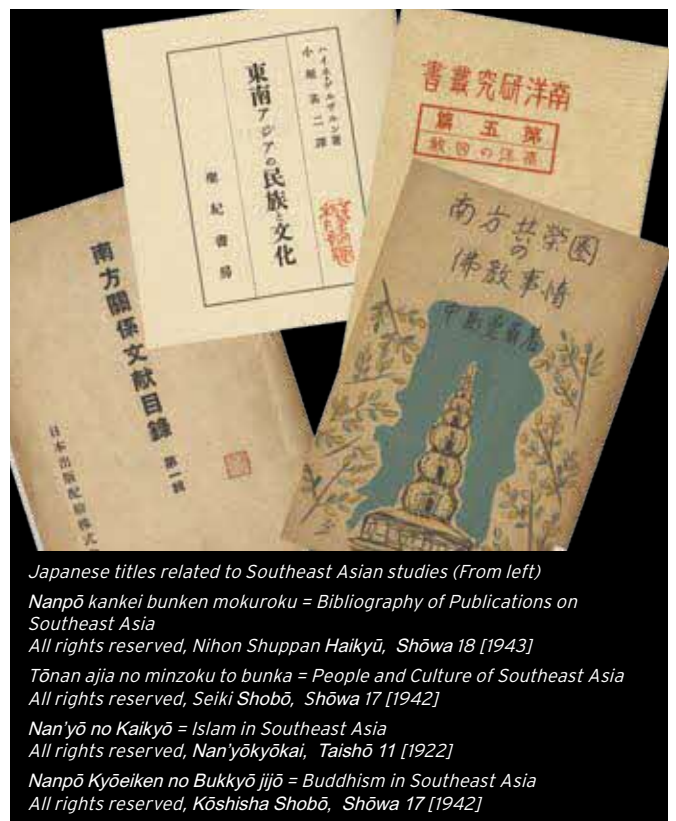 南方關係文献目錄 第一輯
日本出版配給株式
ハイネゲルデルン著
小堀甚二譯
東南アジアの民族と文化
聖紀書房
南洋研究叢書
第五篇
南洋の回教
南方共榮圏
の
佛教事情
中島 著
Japanese titles related to Southeast Asian studies (From left)
Nanpō kankei bunken mokuroku = Bibliography of Publications on
Southeast Asia
All rights reserved, Nihon Shuppan Haikyū, Shōwa 18 [1943]
Tōnan ajia no minzoku to bunka = People and Culture of Southeast Asia
All rights reserved, Seiki Shobō, Shōwa 17 [1942]
Nan'yō no Kaikyō = Islam in Southeast Asia
All rights reserved, Nan'yōkyōkai, Taishō 11 [1922]
Nanpō Kyōeiken no Bukkyō jijō = Buddhism in Southeast Asia
All rights reserved, Kōshisha Shobō, Shōwa 17 [1942]